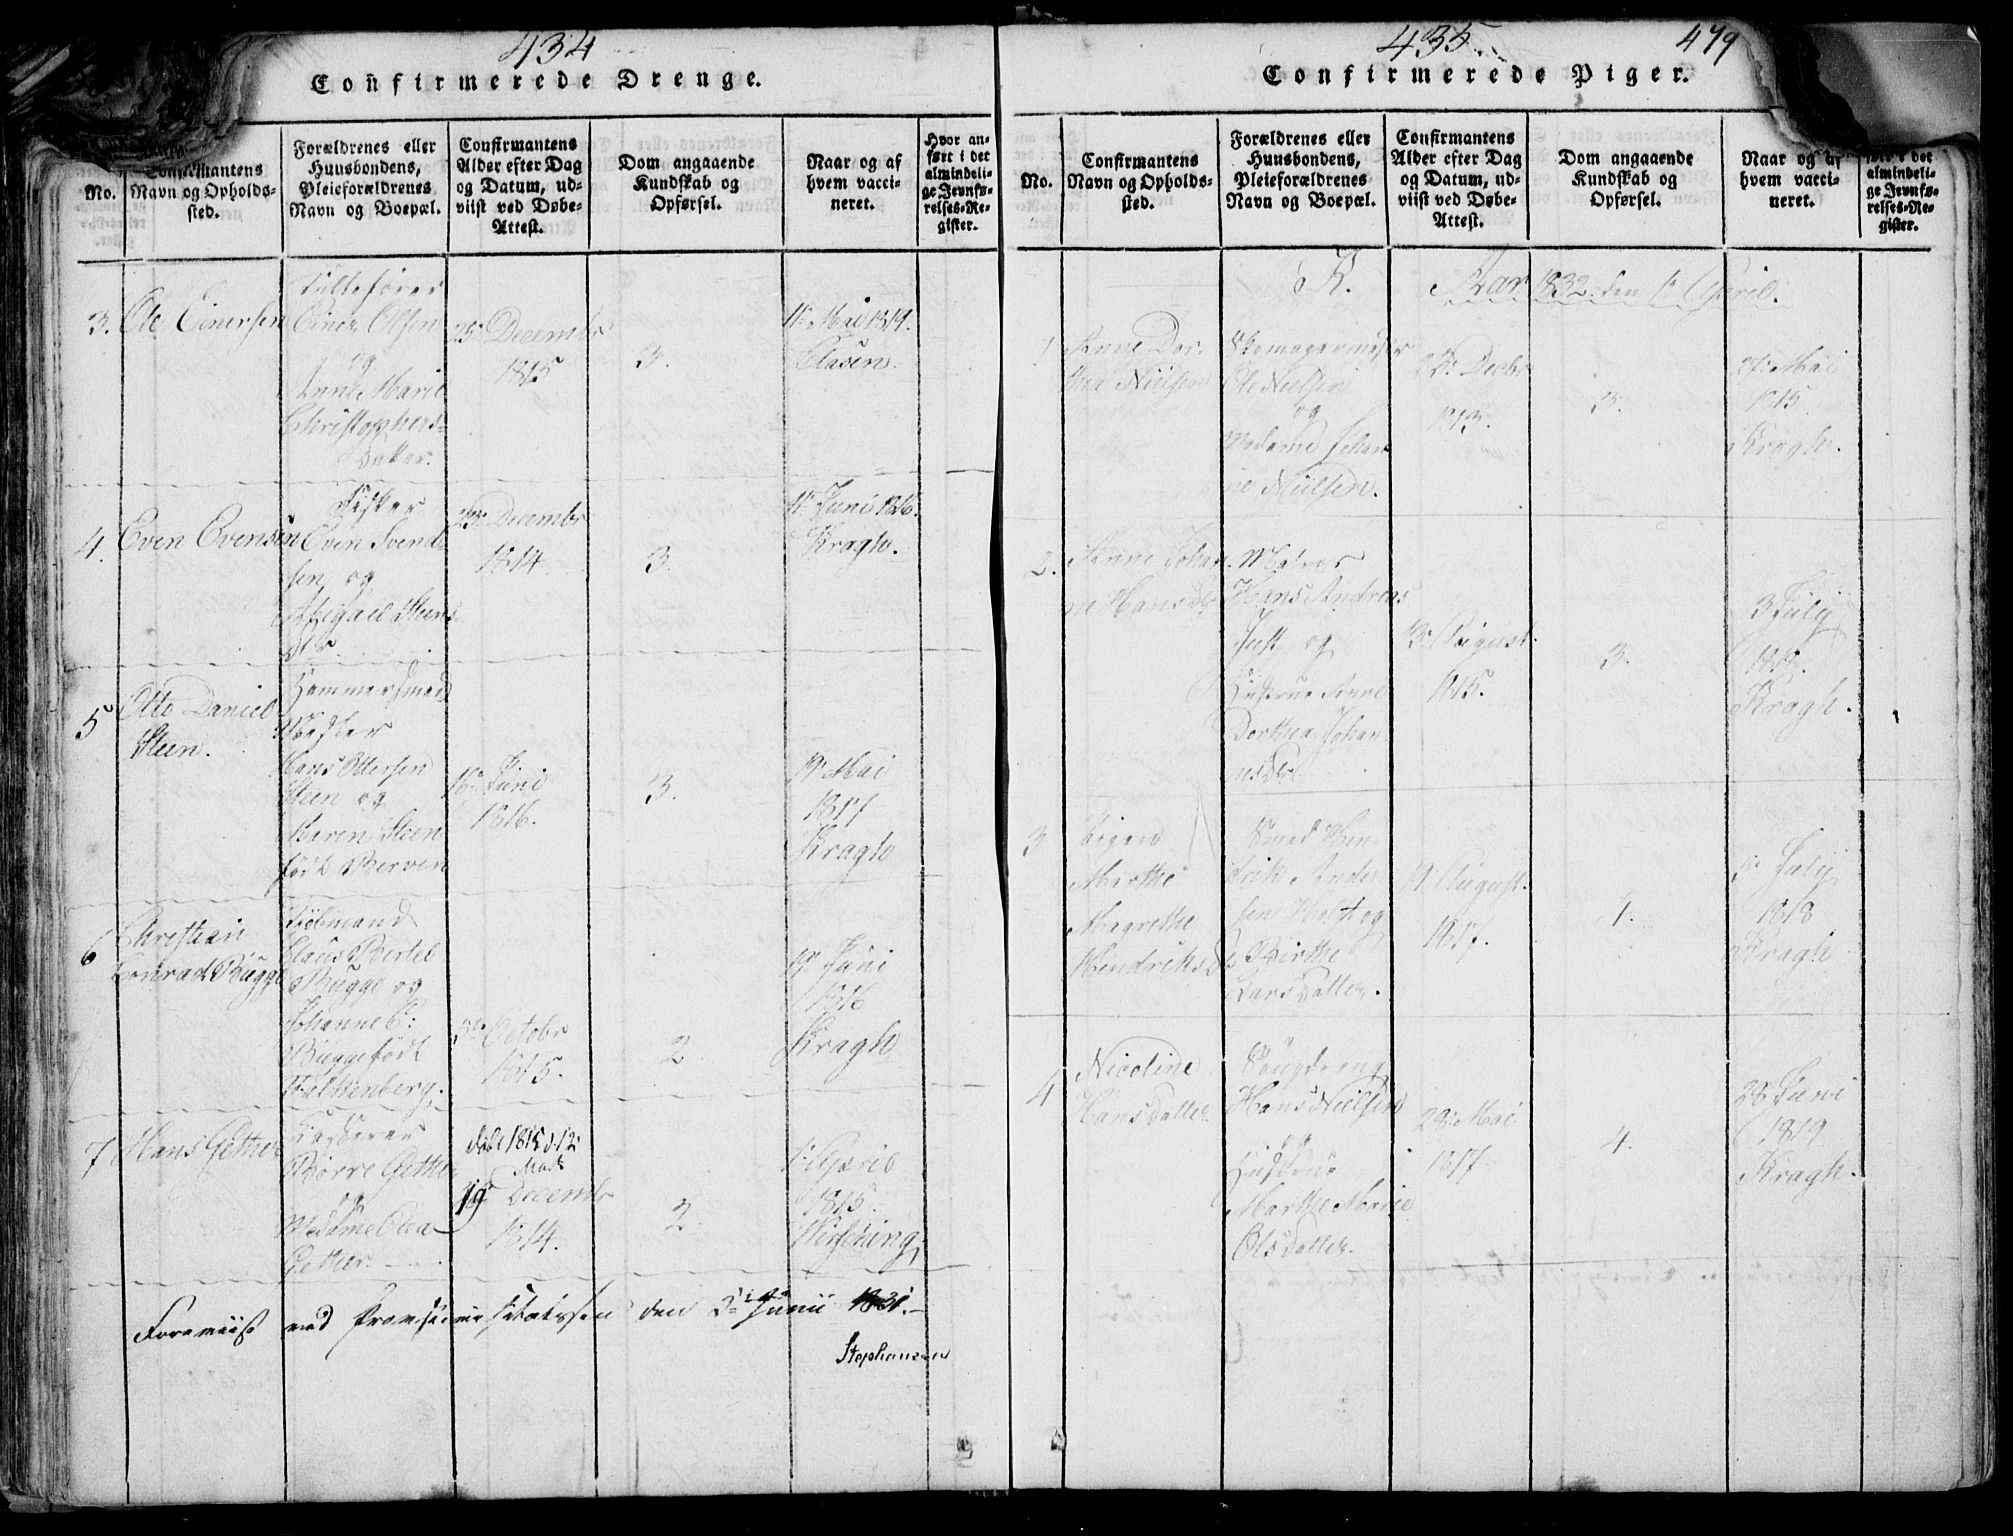 434
Confirmerede Drenge.
No.
Confirmantens
Navn og Opholds-
sted.
Forældrenes eller
Huusbondens,
Pleieforældrenes
Navn og Boepæl.
Confirmantens
Alder efter Dag
og Datum, ud-
viist ved Døbe-
Attest.
Dom angaaende
Kundskab og
Opførsel.
Naar og af
hvem vacci-
neret.
Hvor an-
ført i det
almindeli-
ge Jevnfø-
relses-Re-
gister.
3.
Ole Einersen
Einer Olsen
og
Anne Marie
Christophers-
Datter.
25 Decembr
1815
3.
11 Mai 1819.
Clasen.
4.
Even Evensen
Fisker
Even Svend-
sen og
Abigael Steens
Dtr.
23 Decembr
1814
3.
11 Juni 1816.
Kragh.
5
Otto Daniel
Steen.
Hammersmed
Mester
Hans Ottersen
Steen og
Maren Steen
født Berven
16 Juni
1816.
3.
19 Mai
1817
Kragh
6
Christian
Conrad Bugge
Kjøbmand
Claus Bertel
Bugge og
Johanne C:
Bugge født
Falkenberg.
5te Octobr
1815.
2
19 Juni
1816
Kragh
7
Hans Gether
Kasserer
Børre Gether
og
Madame Olea
Gether.
døbt 1815 d. 12
Marts
19 Decembr
1814.
2
1 April
1815.
Wisening
Foreviist ved Provsti visitatsen den 3 Junii 1831.
Stephansen
435.
479
Confirmerede Piger.
No.
Confirmantens
Navn og Opholds-
sted.
Forældrenes eller
Huusbondens,
Pleieforældrenes
Navn og Boepæl.
Confirmantens
Alder efter Dag
og Datum, ud-
viist ved Døbe-
Attest.
Dom angaaende
Kundskab og
Opførsel.
Naar og af
hvem vacci-
neret.
ført i det
almindeli-
ge Jevnfø-
relses-Re-
gister.
K. Aar 1832 den 1 April.
1
Anne Dor-
thea Nielsen
Skomagermester
Ole Nielsen
og
Madame Johan
ne Nielsen.
22 Decbr
1813.
3.
27 Mai
1815.
Kragh.
2.
Anne Johan-
ne HansDtr
Matros
Hans Andreas
Just og
Hustrue Anne
Dorthea Johan
nesDtr
13 August
1815.
3.
3 July
1818.
Kragh.
3
Marthe
Magrethe
HendriksDtr
Smed Hen-
drik Ander
sen Holst og
Birthe
LarsDatter.
19 August.
1817.
1.
July
1818
Kragh
4
Nicoline
HansDatter
Hans Nielsen
og
Hustrue
Marthe Marie
OlsDatter.
29 Mai
1817
4.
28 Juni
1819
Kragh.